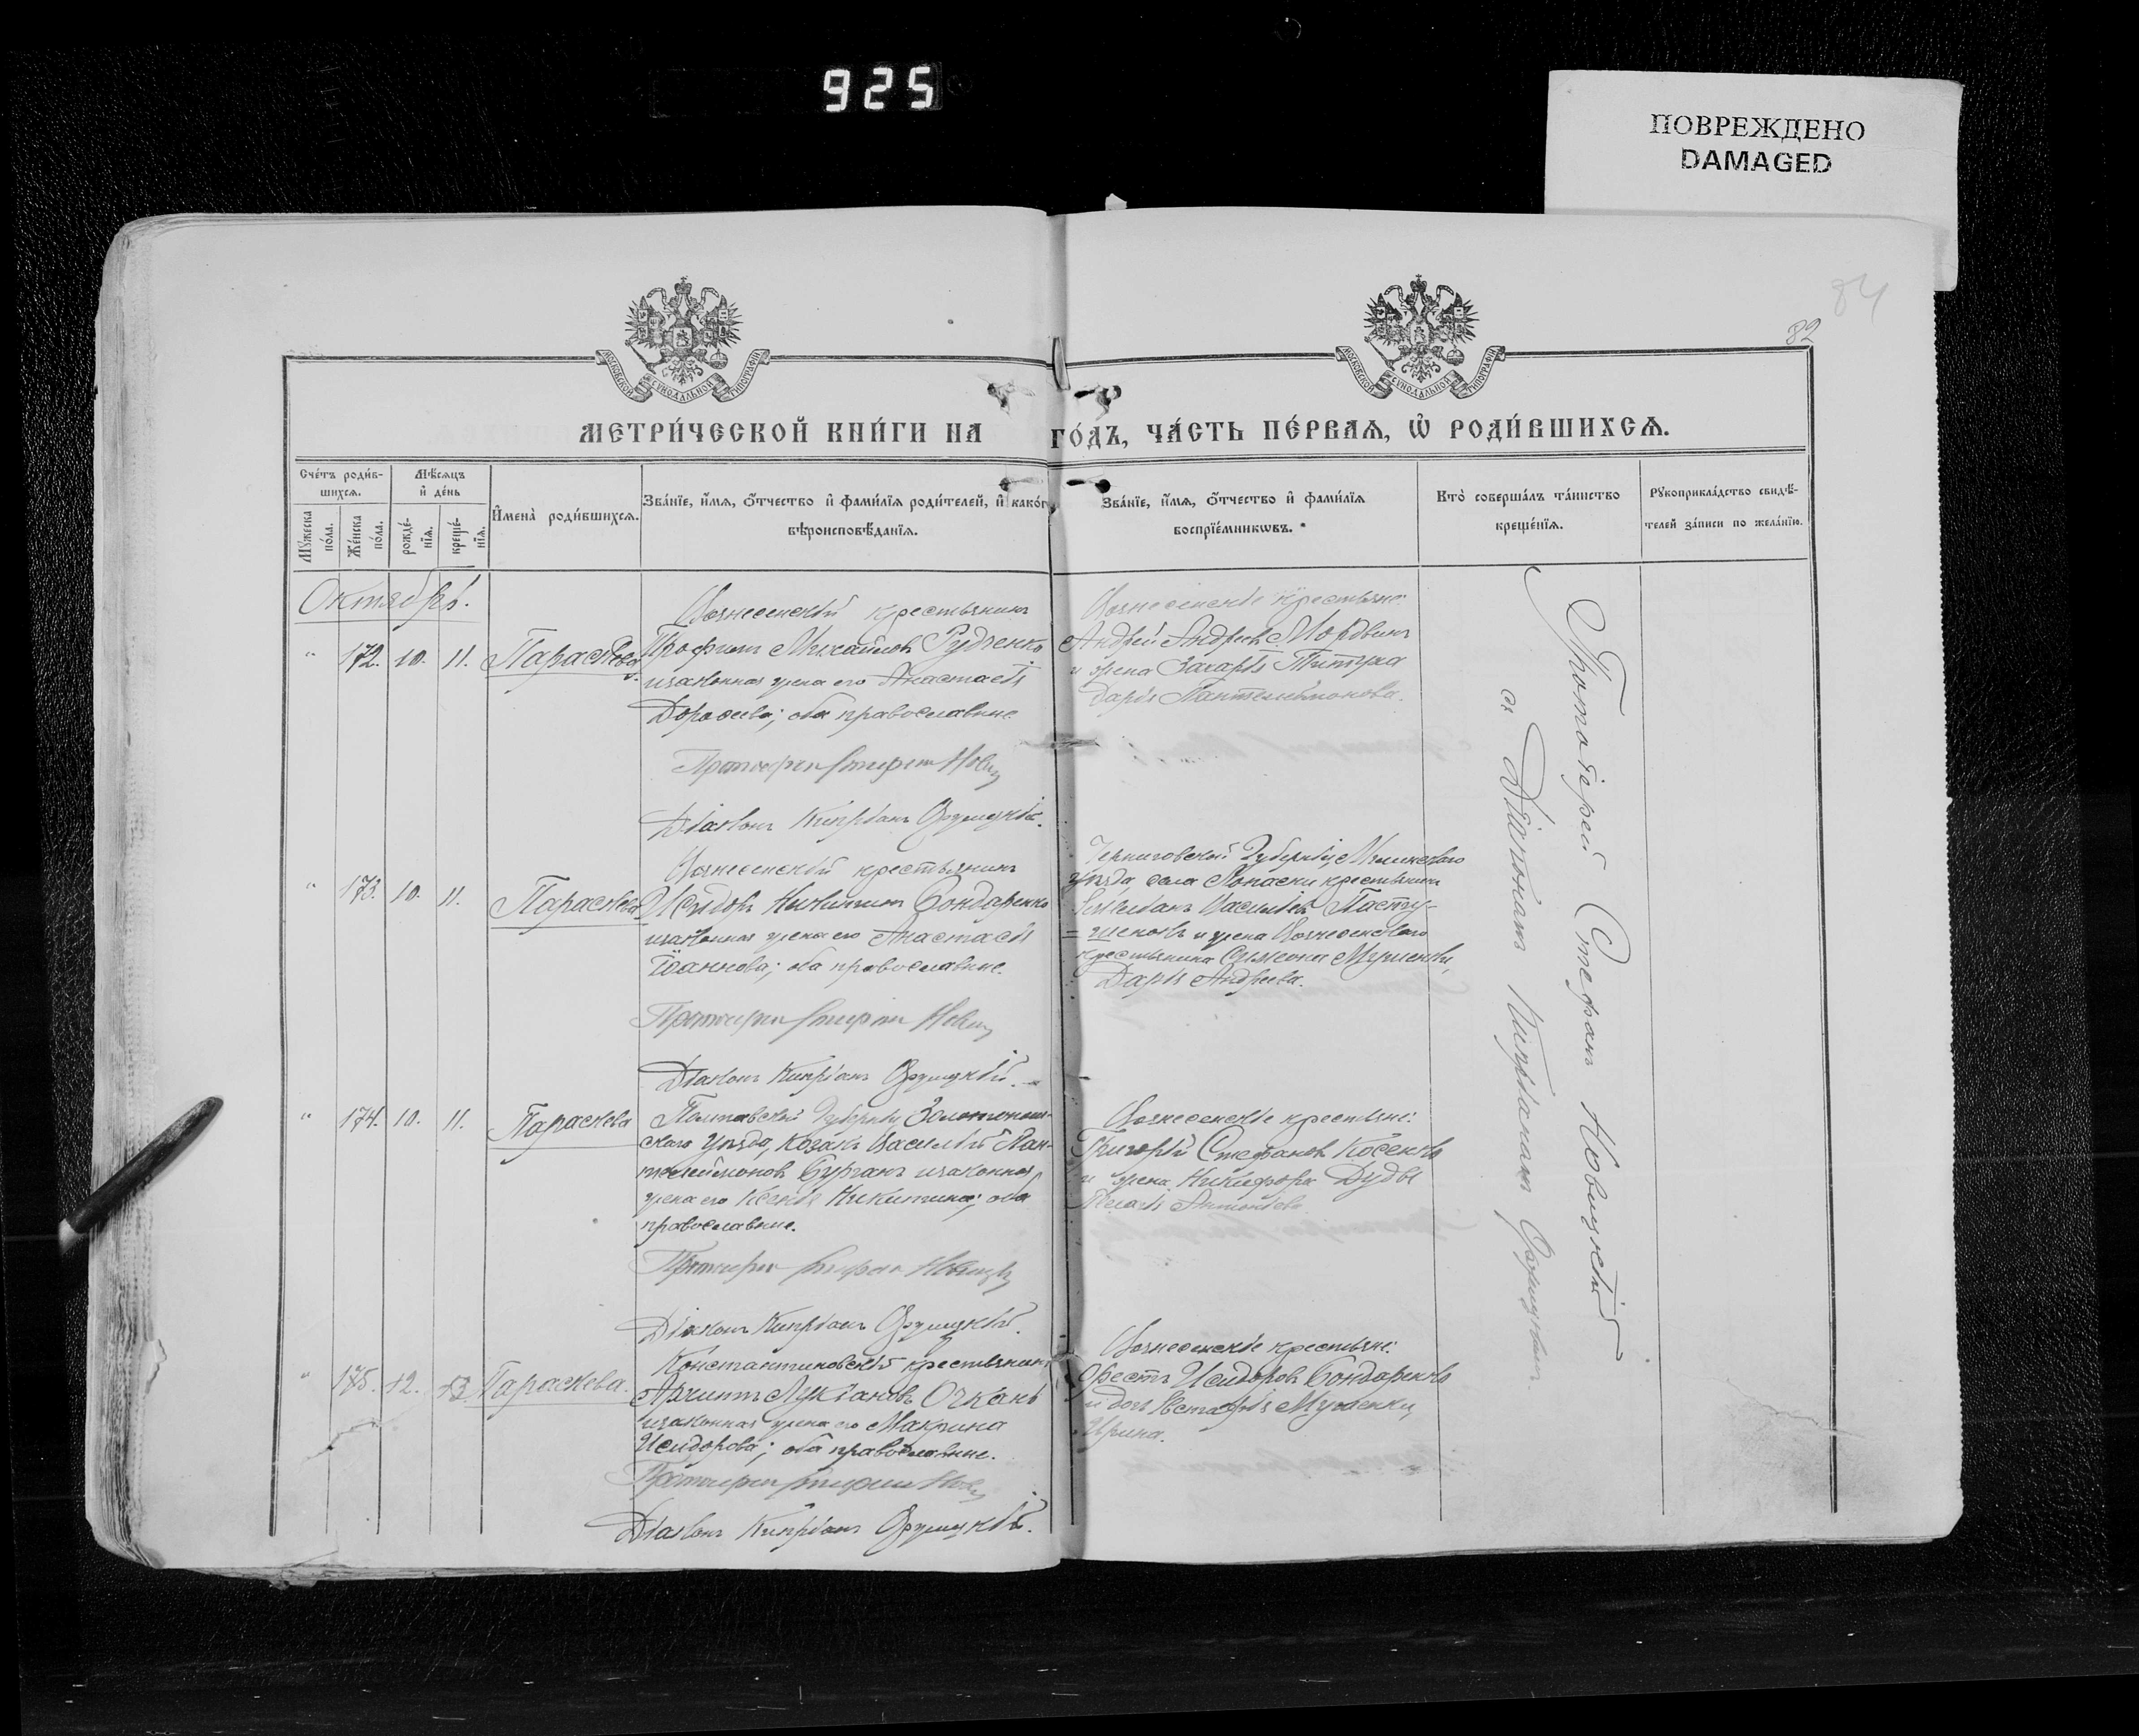 925
ПОВРЕЖДЕНО
DAMAGED
84
82
МОСКОВСКОЙ СѴНОДАЛЬНОЙ ТИПОГРАФІИ
МОСКОВСКОЙ СѴНОДАЛЬНОЙ ТИПОГРАФІИ
МЕТРИ́ЧЕСКОЙ КНИ́ГИ НА ГО́ДЪ, ЧА́СТЬ ПЕ́РВАѦ, Ѽ РОДИ́ВШИХСѦ.
Сче́тъ роди́в-
шихсѧ.
Мꙋ́жеска
по́ла.
Же́нска
по́ла.
Мѣ́сѧцъ
и҆ де́нь
рожде́-
нїѧ.
креще́-
нїѧ.
И҆мена̀ роди́вшихсѧ.
Зва́нїе, и҆́мѧ, ѻ҆́тчество и҆ фами́лїѧ роди́телей, и҆ како́гѡ
вѣроисповѣ́данїѧ.
Зва́нїе, и҆́мѧ, ѻ҆́тчество и҆ фами́лїѧ
воспрїе́мникѡвъ.
Кто̀ соверша́лъ та́инство
креще́нїѧ.
Рꙋкоприкла́дство свидѣ́-
телей за́писи по жела́нїю.
Октябрь.
" 172. 10. 11. Параскева
Вознесенскій крестьянинъ
Трофимъ Михайловъ Рудченко
и законная жена его Анастасія
Дороѳеева; оба православные.
Протоіерей Стефанъ Новиц
Діаконъ Кипріанъ
Вознесенскіе крестьяне:
Андрей Андреевъ Мордвинъ
и жена Захарія Титука
Дарія Пантелеймонова.
" 173. 10. 11. Параскева
Вознесенскій крестьянинъ
Исидоръ Никитинъ Бондаренко
и законная жена его Анастасія
Іоаннова; оба православные.
Протоіерей Стефанъ Новиц
Діаконъ Кипріанъ
Черниговской Губерніи, Мглинскаго
уѣзда, села крестьянинъ
Василіевъ Пасту-
шенковъ и жена Вознесенскаго
крестьянина Симеона
Дарія Андреева.
" 174. 10. 11. Параскева
Полтавской Губерніи, Золотонош-
скаго уѣзда, козакъ Василій Пан-
телеймоновъ Бурганъ и законная
жена его Ксенія Никитина; оба
православные.
Протоіерей Стефанъ Новицк
Діаконъ Кипріанъ
Вознесенскіе крестьяне:
Григорій Стефановъ Косенко
и жена Никифора Дуды
Пелагія Антоніева
" 175. 12. 13. Параскева.
Константиновскій крестьянинъ
Архиппъ Лукіановъ Очкань
и законная жена его Макрина
Исидорова; оба православные.
Протоіерей Стефанъ Нови
Діаконъ Кипріанъ
Вознесенскіе крестьяне:
Орестъ Исидоровъ Бондаренко
и дочь Евстафія
Ирина.
Протоіерей Стефанъ Новицкій
съ Діакономъ Кипріаномъ